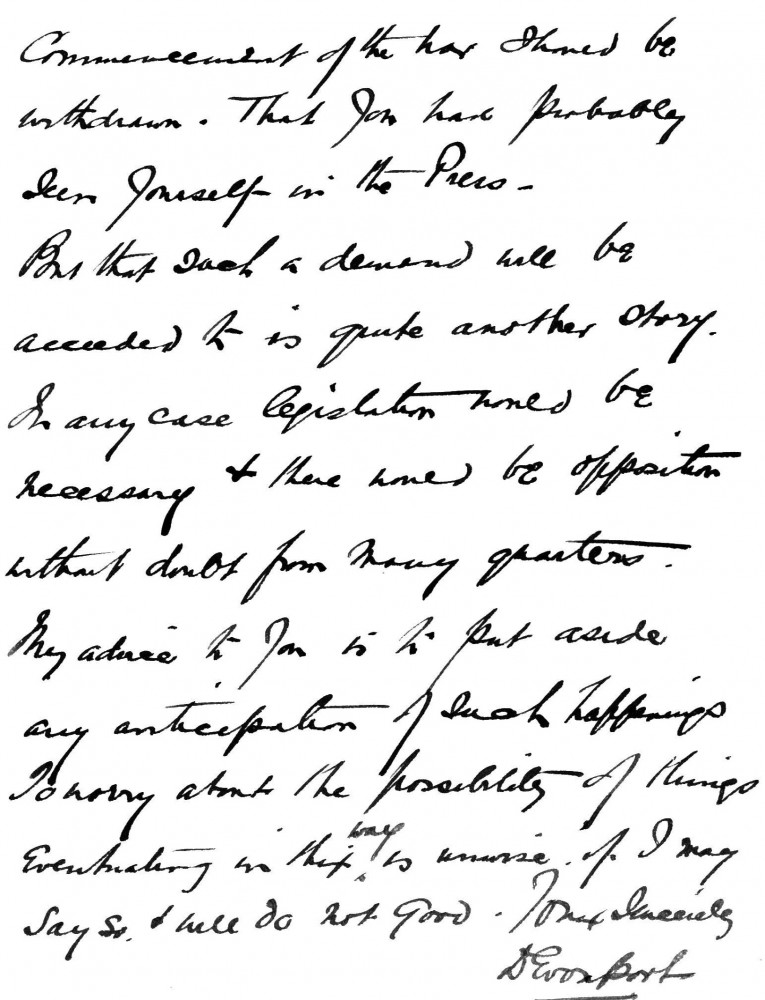 Commencement of the war should be
withdrawn. That you have probably
seen yourself in the Press -
But that such a demand will be
acceeded to is quite another story.
In any case legislation would be
necessary & there would be opposition
without doubt from many quarters.
My advice to you is to put aside
any anticipation of such happenings
To worry about the possibility of things
eventuating in this way is unwise, if I may
say so, & will do not good. Yours Sincerely
Devonport